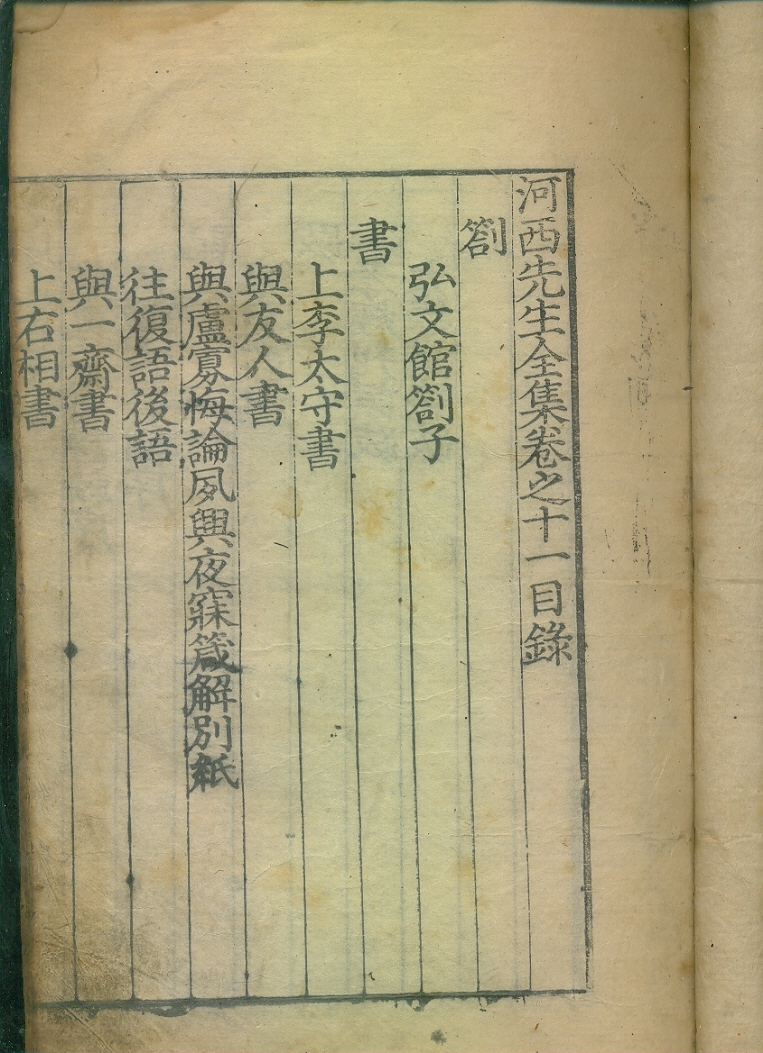 河西先生全集卷之十一目錄
劄
弘文館劄子
書
上李太守書
與友人書
與盧寡悔論夙興夜寐箴解別紙
往復語後語
與一齋書
上右相書